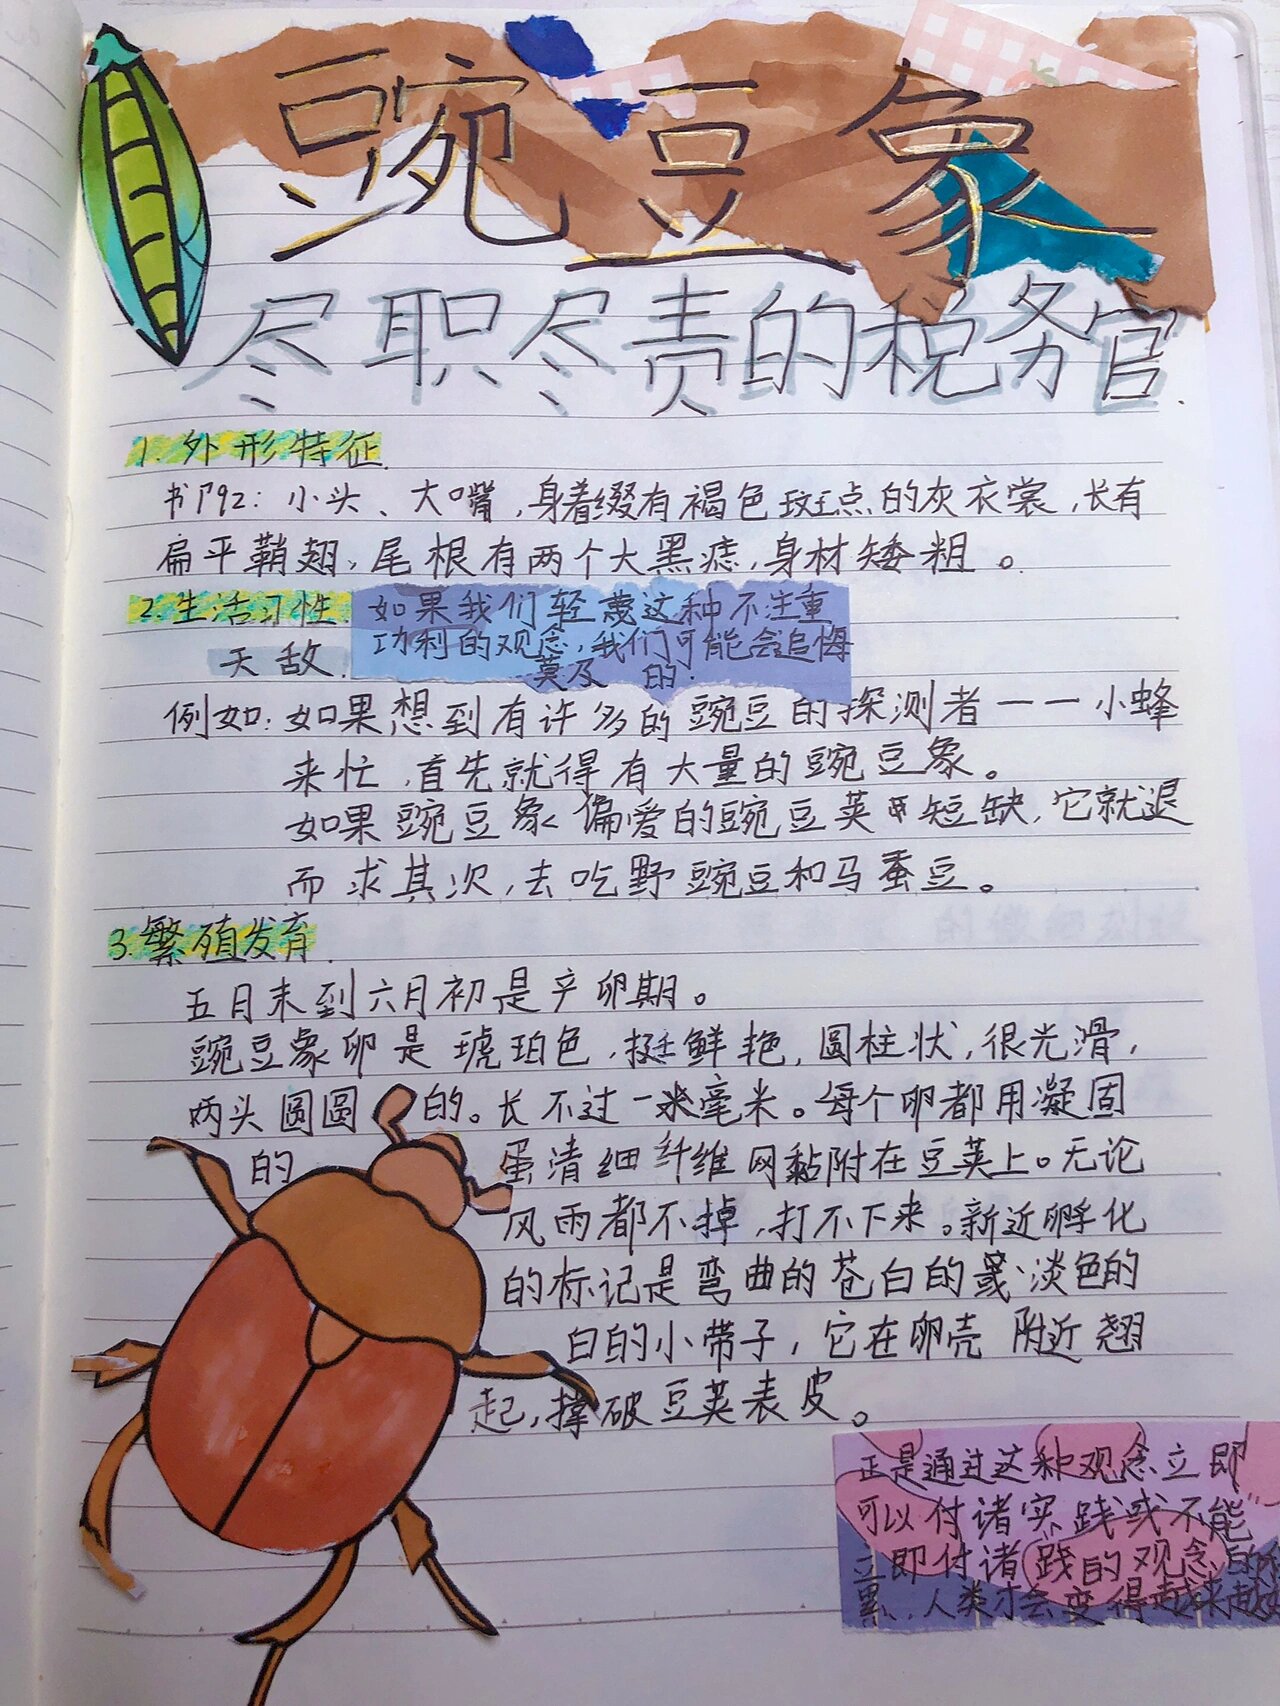 豌豆象
尽职尽责的税务官.
1.外形特征.
书P92:小头、大嘴,身着缀有褐色斑点的灰衣裳,长有
扁平鞘翅,尾根有两个大黑痣,身材矮粗。
2.生活习性.
如果我们轻蔑这种不注重
功利的观念,我们可能会追悔
莫及的.
天敌.
例如:如果想到有许多的豌豆的探测者——小蜂
来忙,首先就得有大量的豌豆象。
如果豌豆象偏爱的豌豆荚短缺,它就退
而求其次,去吃野豌豆和马蚕豆。
3.繁殖发育.
五月末到六月初是产卵期。
豌豆象卵是琥珀色,挺鲜艳,圆柱状,很光滑,
两头圆圆的。长不过一毫米。每个卵都用凝固
的蛋清细纤维网黏附在豆荚上。无论
风雨都不掉,打不下来。新近孵化
的标记是弯曲的苍白的或淡色的
白的小带子,它在卵壳附近翘
起,撑破豆荚表皮。
正是通过这种观念立即
可以付诸实践或不能
立即付诸践的观念的
累,人类才会变得越来越